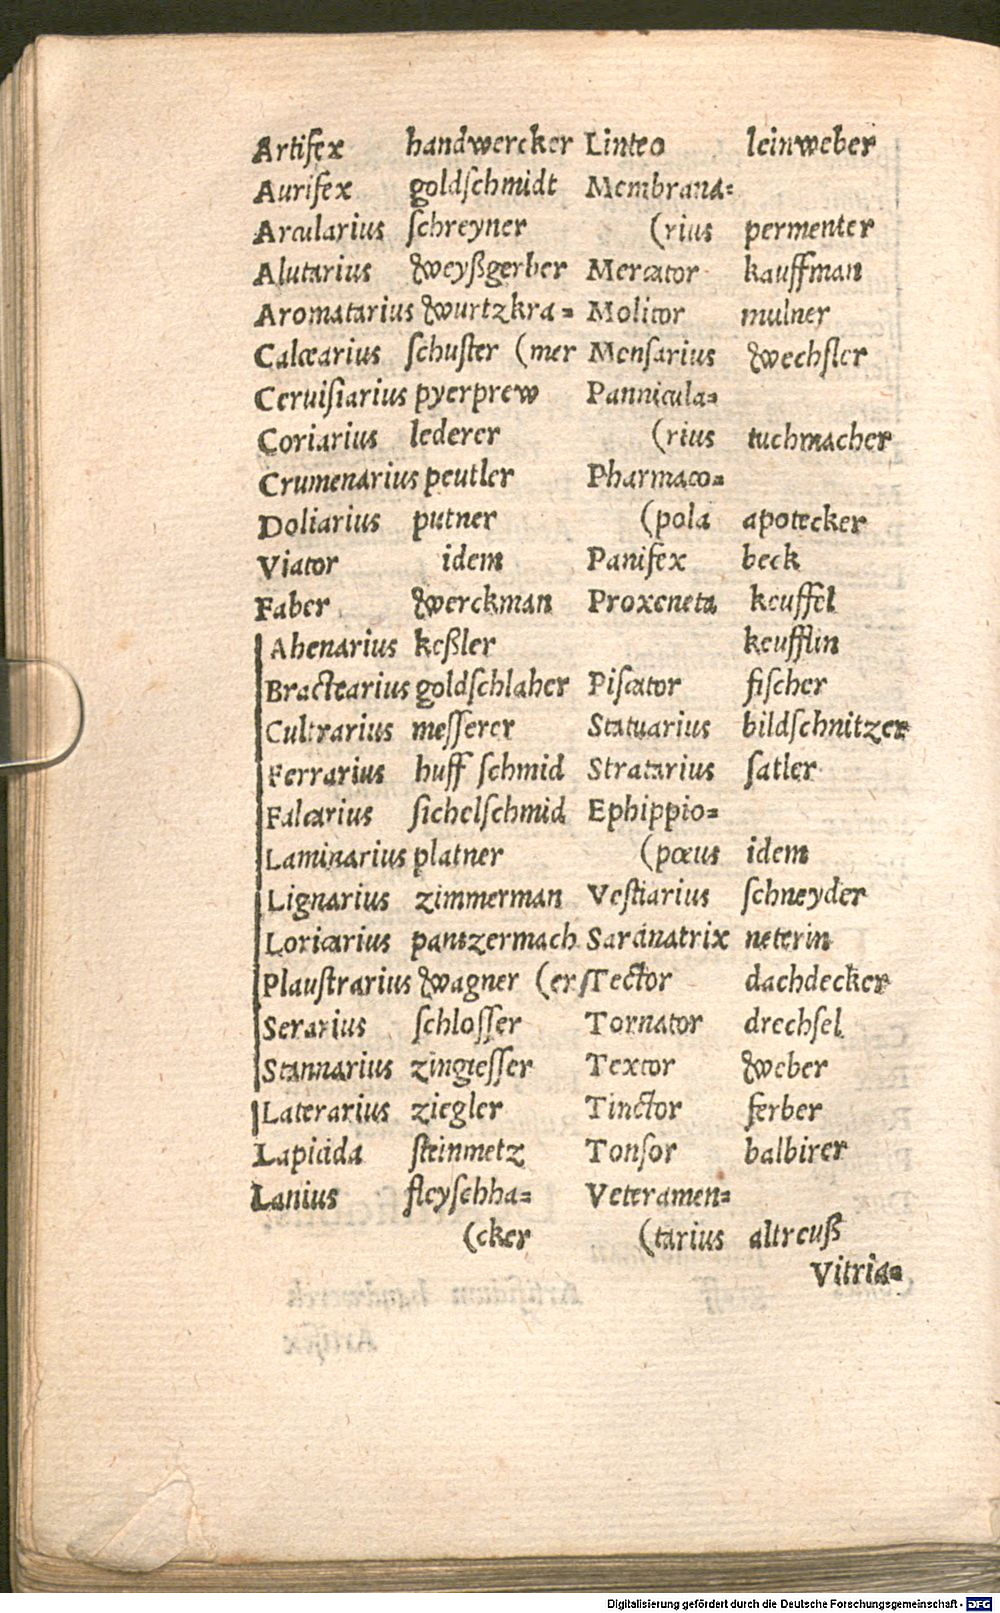 Artifex handwercker
Aurifex goldſchmidt
Arcularius ſchreyner
Alutarius weyßgerber
Aromatarius wurtzkra=
Calcearius ſchuſter (mer
Ceruiſiarius pyerprew
Coriarius lederer
Crumenarius peutler
Doliarius putner
Viator idem
Faber werckman
Ahenarius keßler
Bractearius goldſchlaher
Cultrarius meſſerer
Ferrarius huff ſchmid
Falcarius ſichelſchmid
Laminarius platner
Lignarius zimmerman
Loricarius pantzermach
Plauſtrarius wagner (er/
Serarius ſchloſſer
Stannarius zingieſſer
Laterarius ziegler
Lapicida ſteinmetz
Lanius fleyſchha=
(cker
Linteo leinweber
Membrana=
(rius permenter
Mercator kauffman
Molitor mulner
Menſarius wechſler
Pannicula=
(rius tuchmacher
Pharmaco=
(pola apotecker
Panifex beck
Proxeneta keuffel
keufflin
Piſcator fiſcher
Statuarius bildſchnitzer
Stratarius ſatler
Ephippio=
(pœus idem
Veſtiarius ſchneyder
Sarcinatrix neterin
Tector dachdecker
Tornator drechſel
Textor weber
Tinctor ferber
Tonſor balbirer
Veteramen=
(tarius altreuß
Vitria=
Digitalisierung gefördert durch die Deutsche Forschungsgemeinschaft - DFG